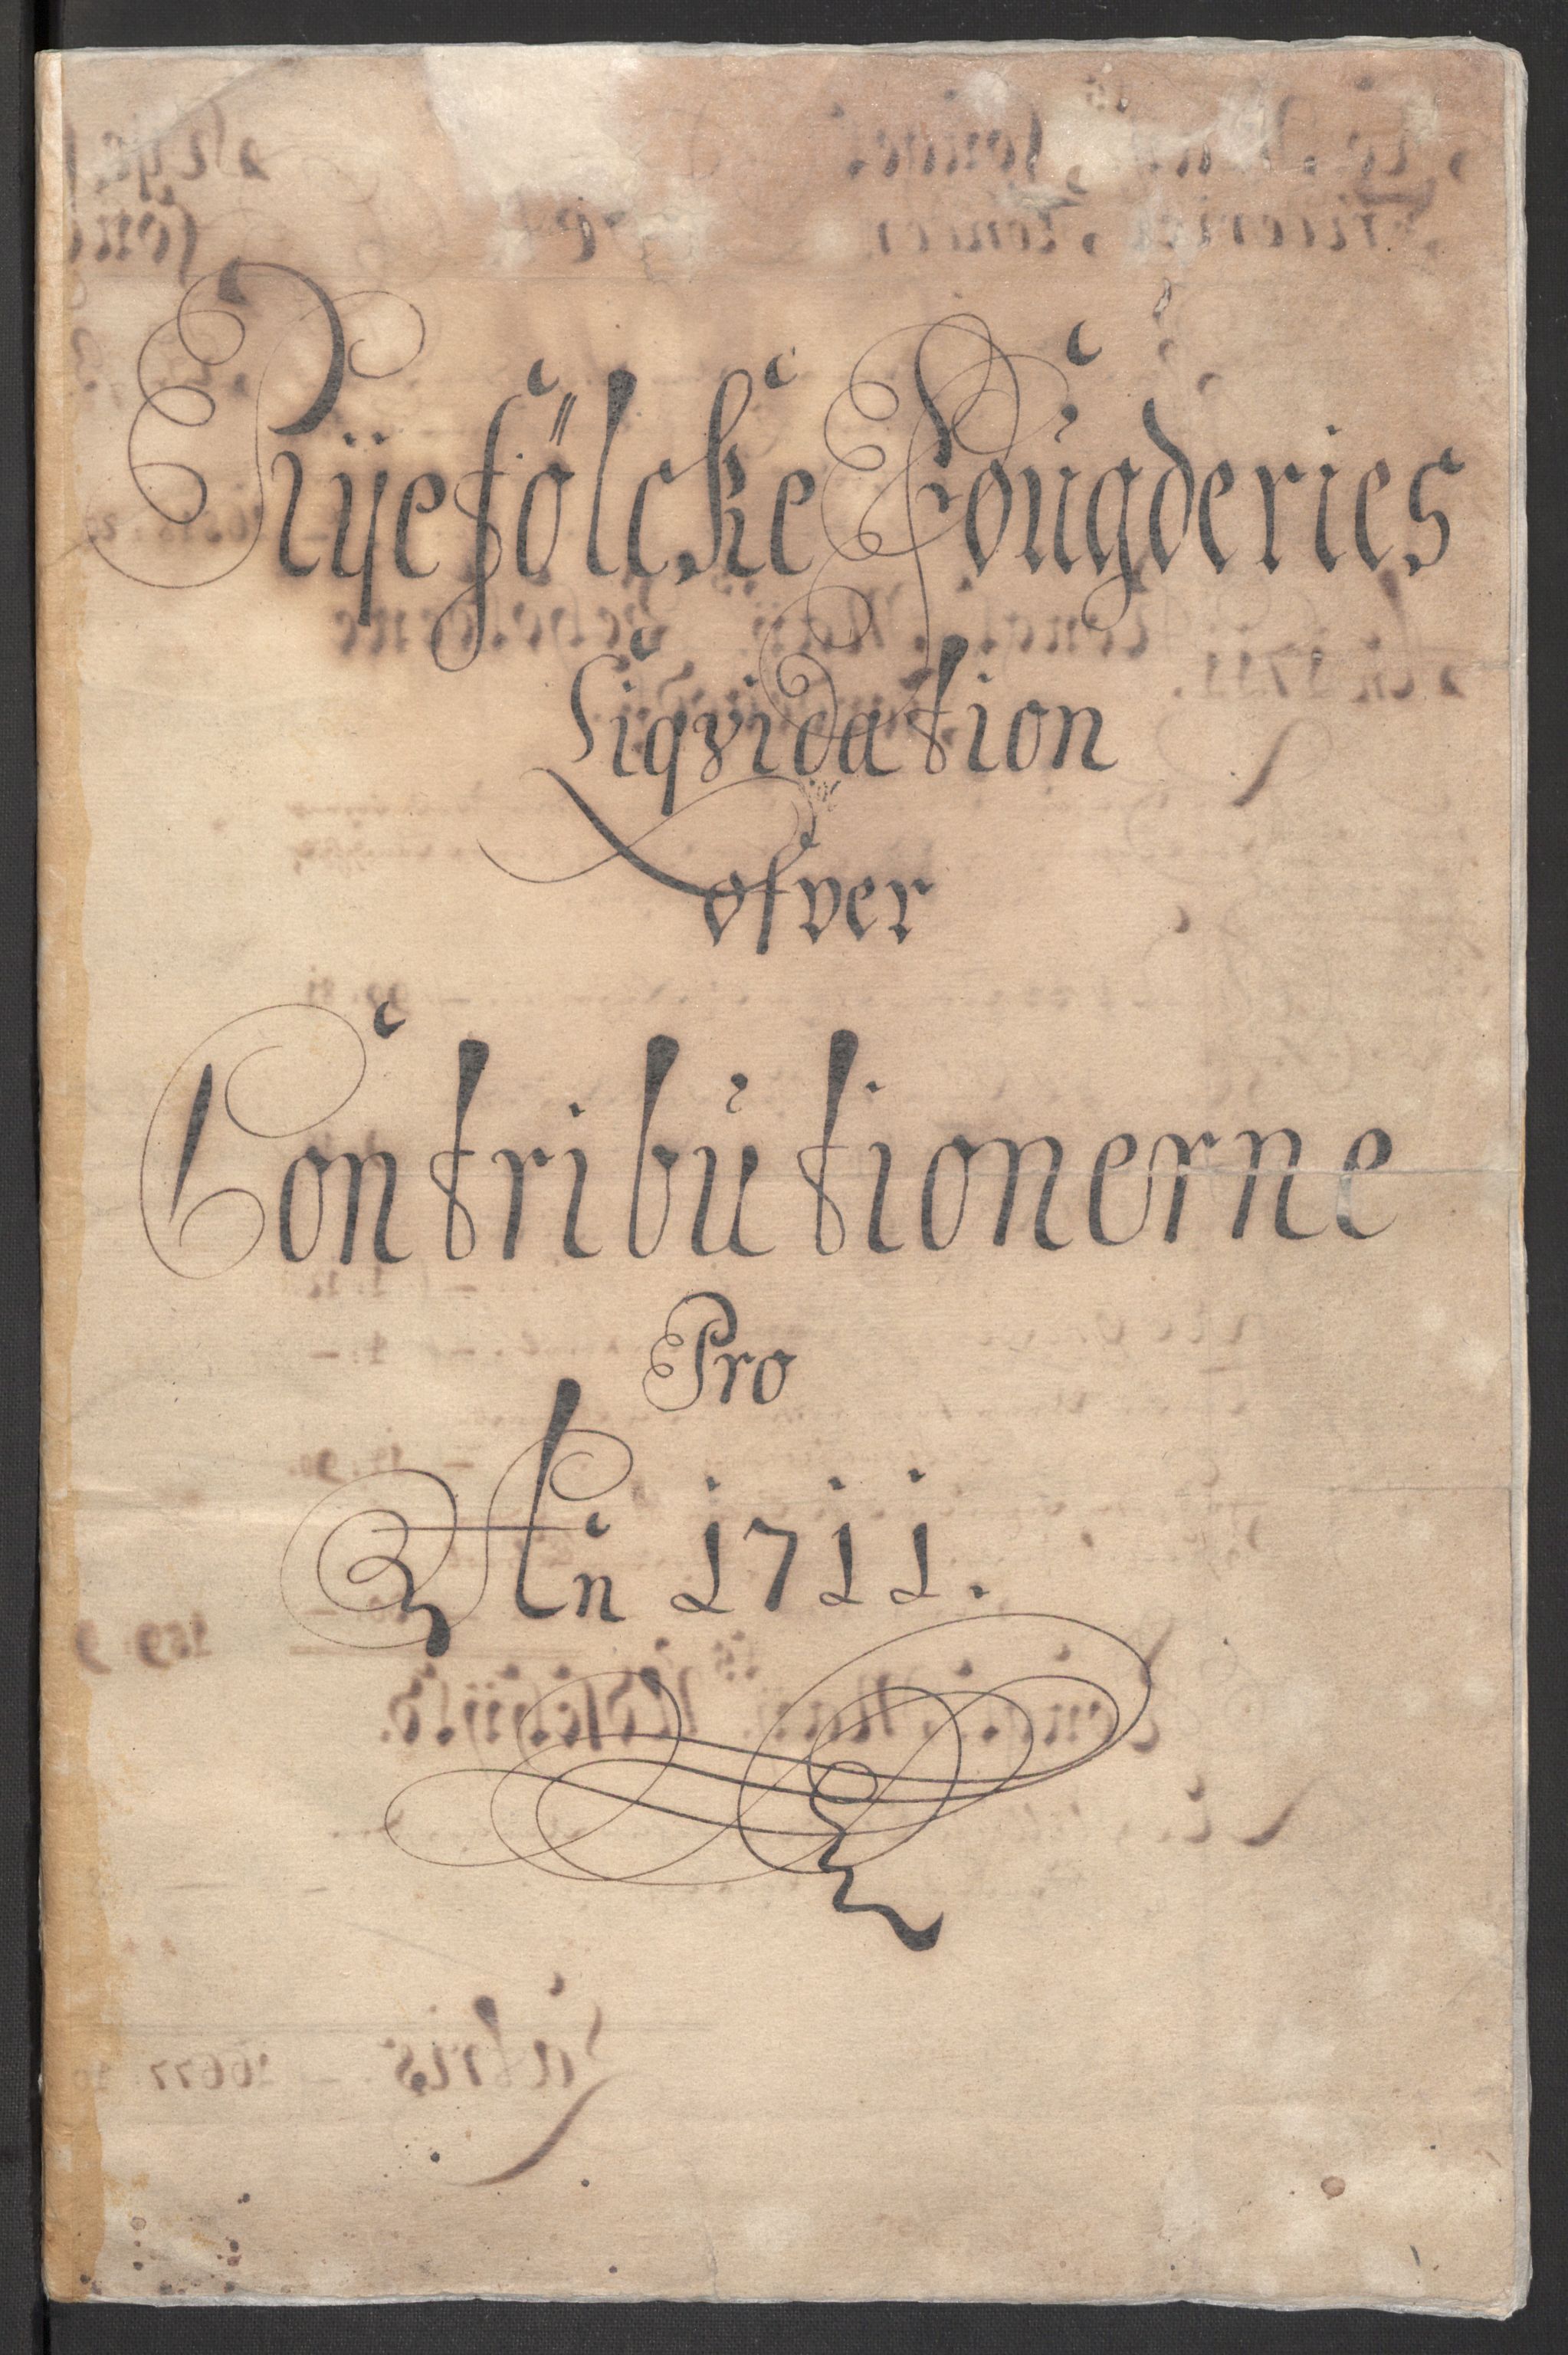 Rÿefölcke Fougderies
Liqvidation
ofver
Contributionerne
Pro
An 1711.